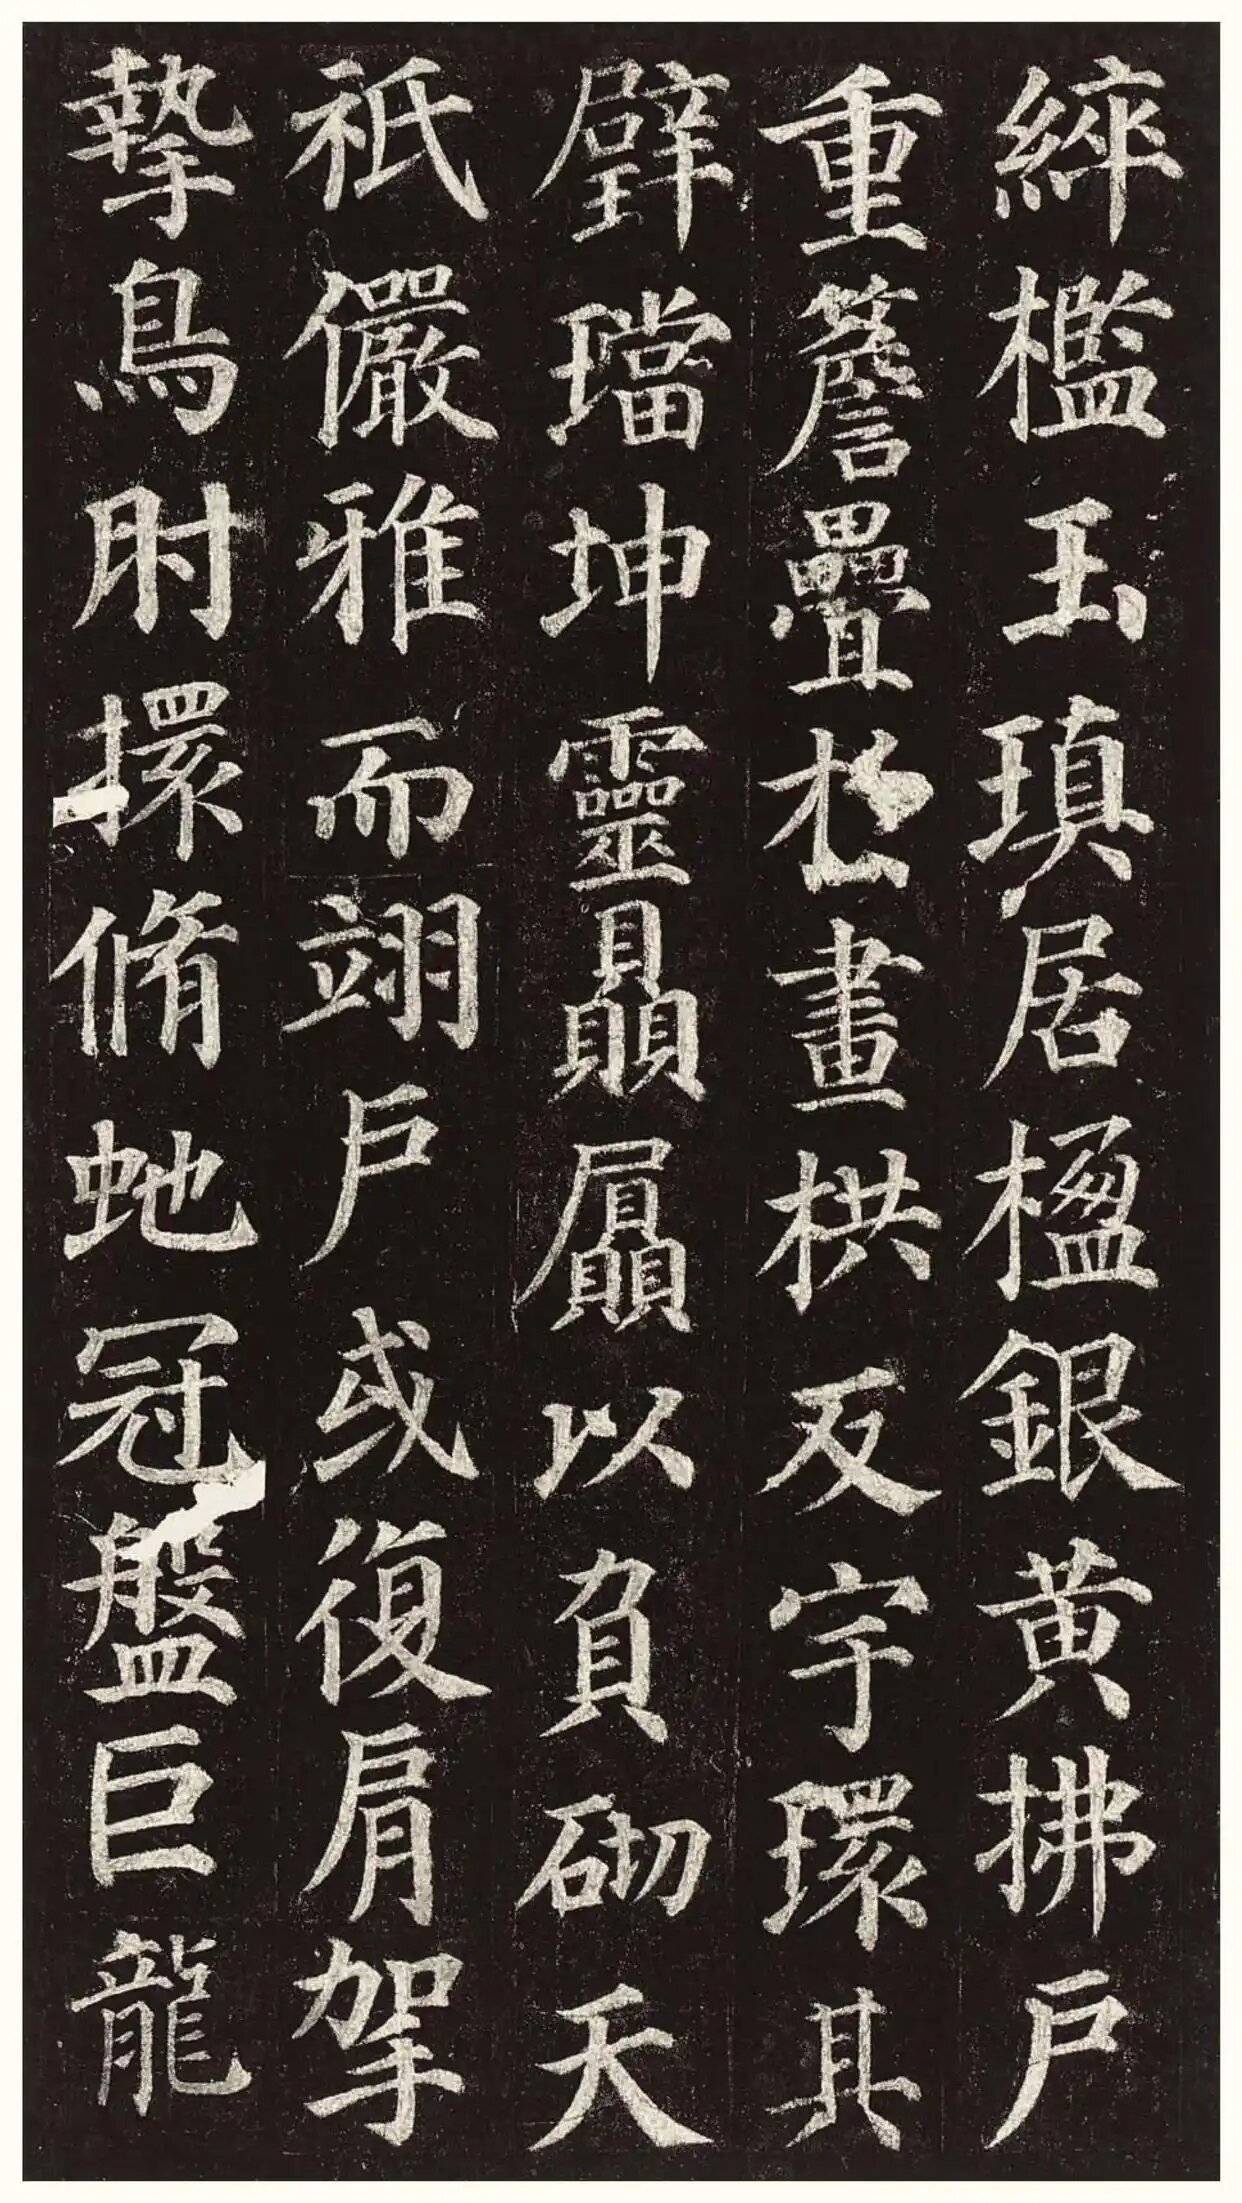 綷檻玉瑱居楹銀黄拂戶
重簷疊於畫栱反宇環其
璧璫坤靈贔屭以負砌天
祇儼雅而翊戶或復肩挐
摯鳥肘擐脩虵冠盤巨龍